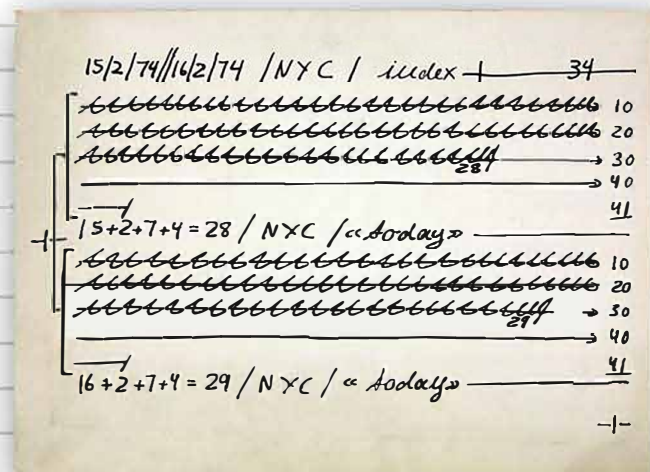 15/2/74//16/2/74 /NYC / index 34
10
20
28 30
40
41
15+2+7+4 = 28 / NYC / «today»
10
20
29 30
40
41
16+2+7+4 = 29 / NYC / «today»